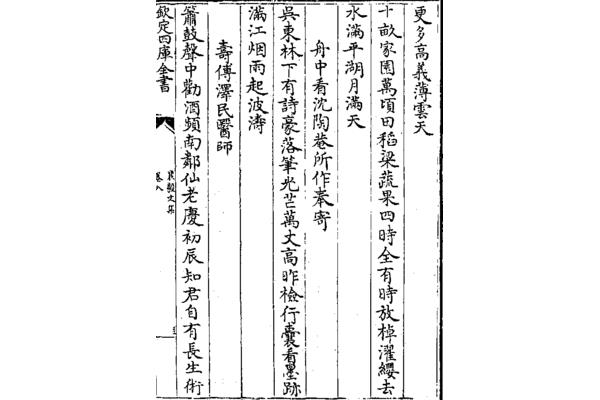 更多高義薄雲天
十畝家園萬頃田稻粱蔬果四時全有時放棹濯纓去
水滿平湖月滿天
舟中看沈陶菴所作奉寄
吳東林下有詩豪落筆光芒萬丈高昨檢行囊看墨跡
滿江烟雨起波濤
壽傅澤民醫師
簫鼓聲中勸酒頻南鄰仙老慶初辰知君自有長生術
欽定四庫全書
卷八